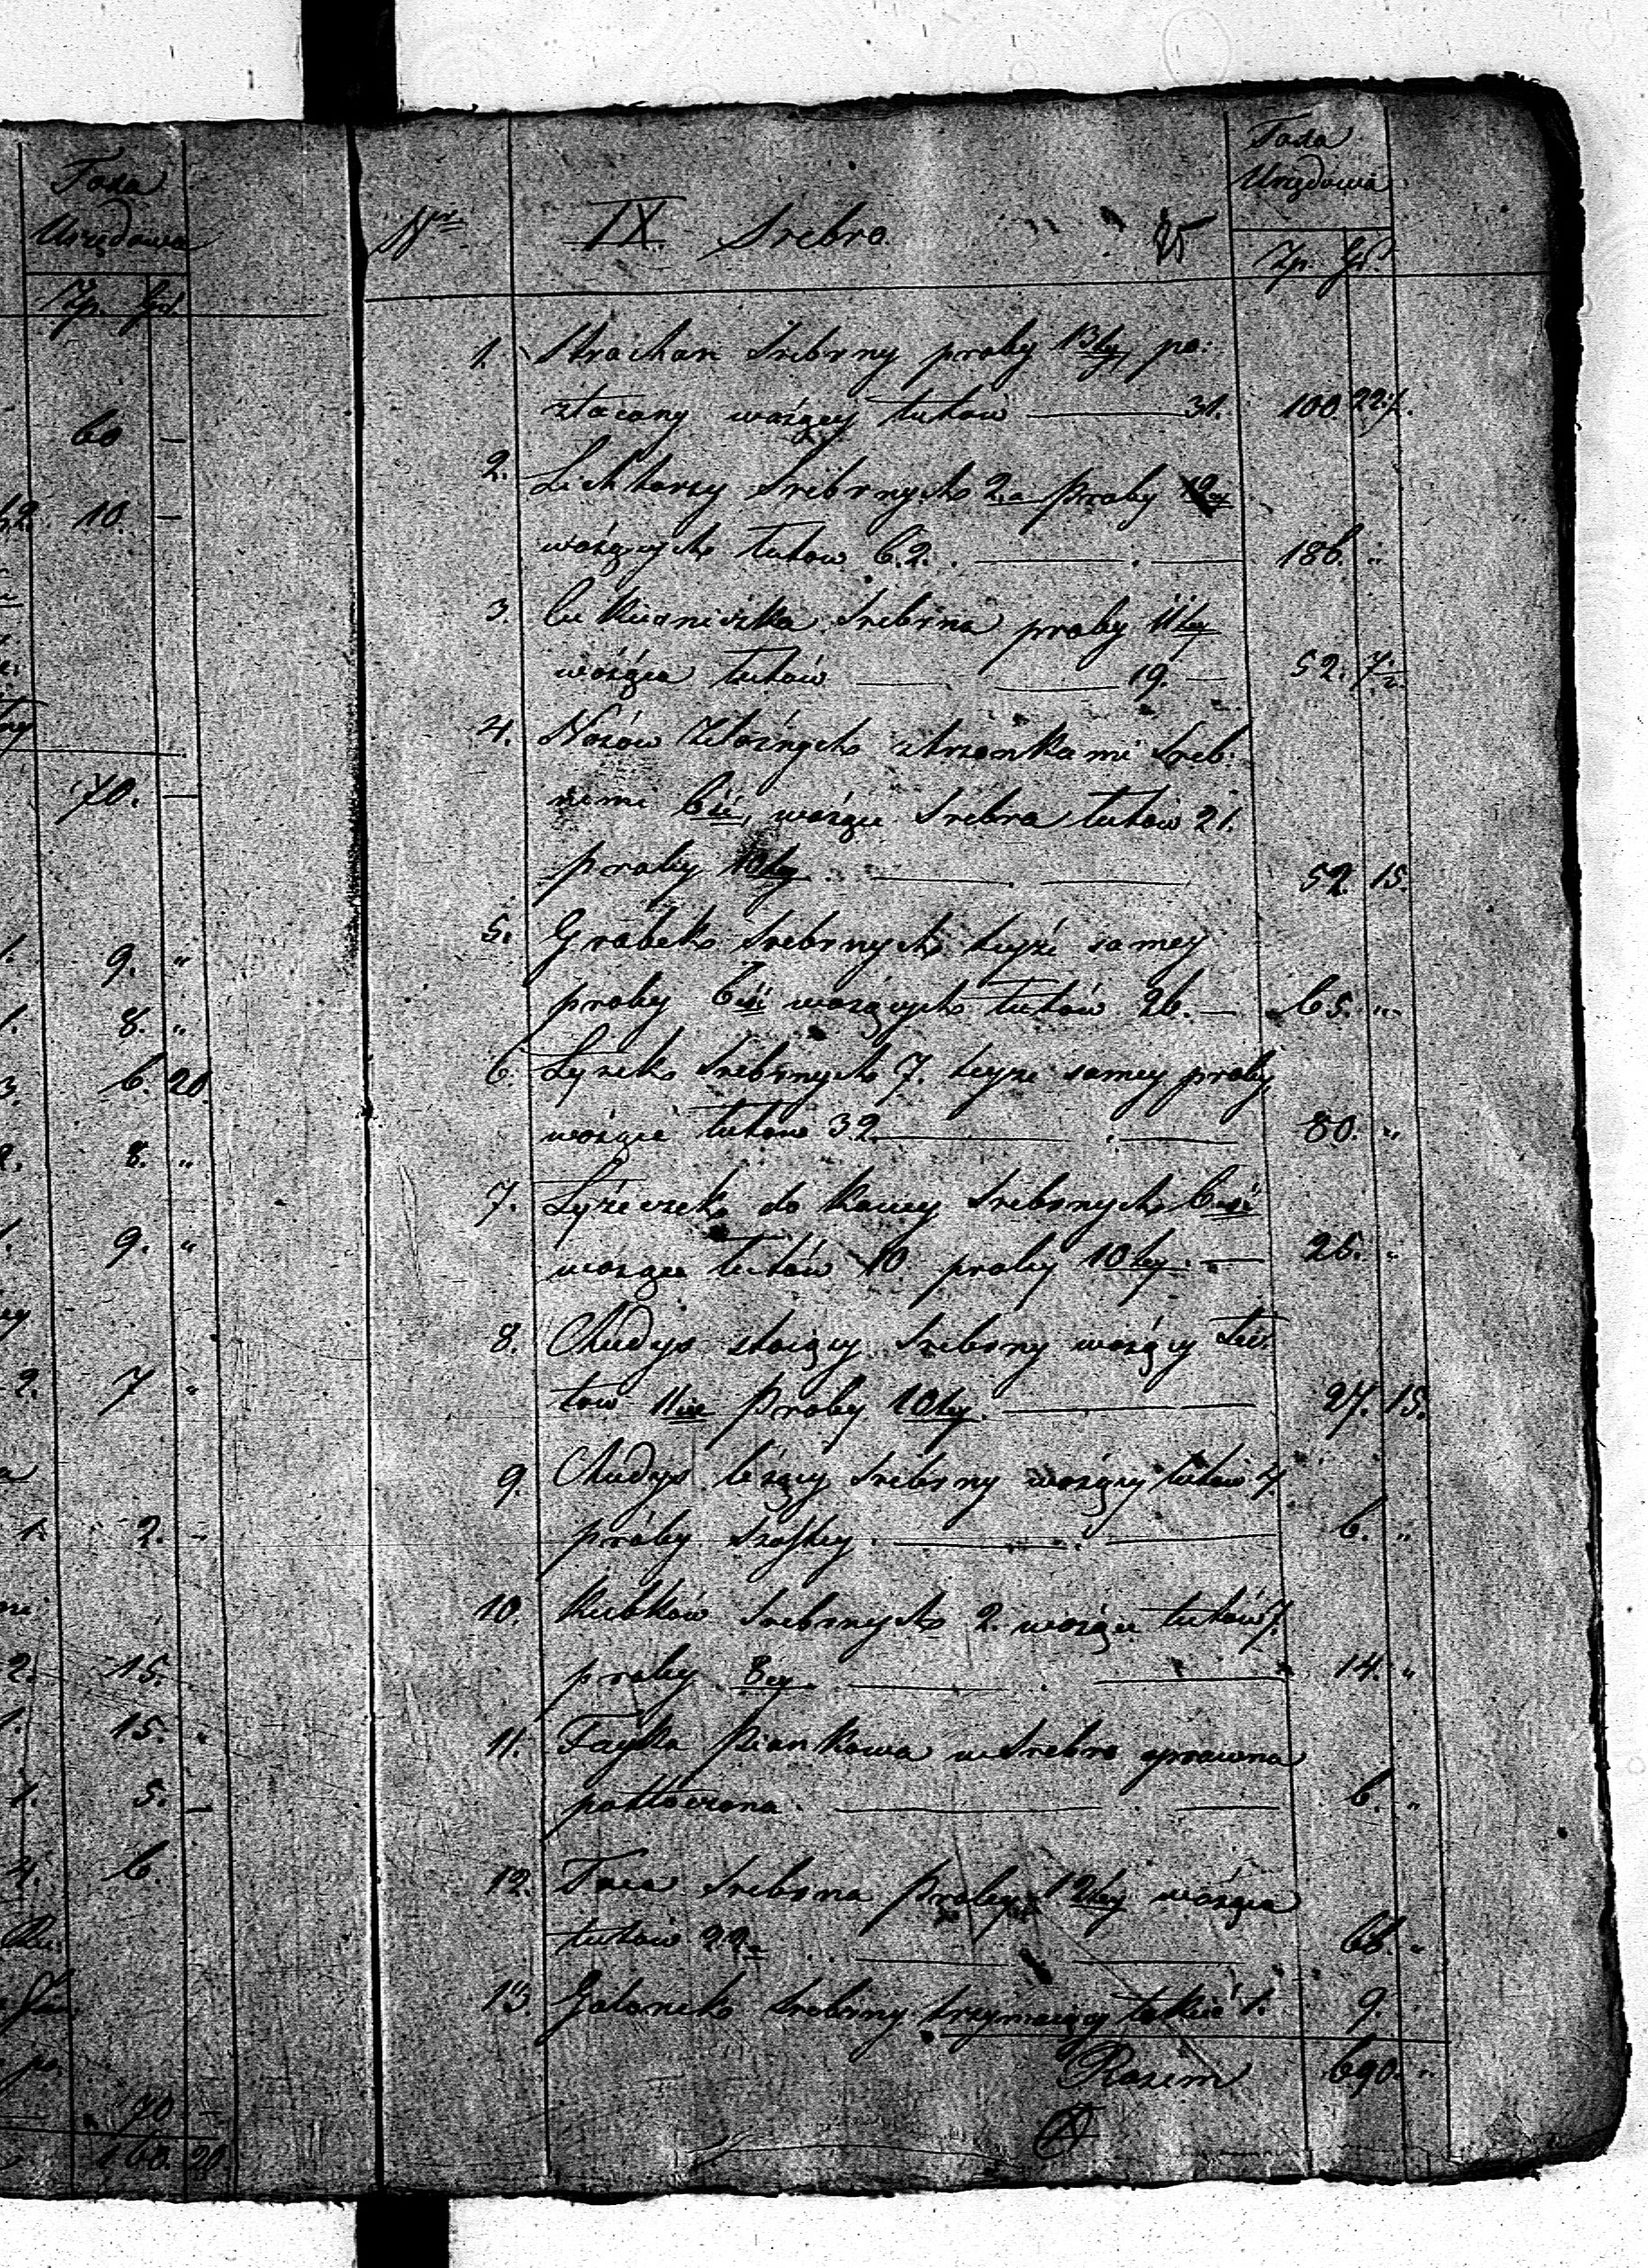 Taxa
Urzędowa
Zp. Gr.
60 —
10. —
70. —
9. "
8. "
6. 20.
8. "
9. "
2. 7 "
1. 2. "
2. 15.
1. 15. "
1. 5. —
4. 6.
70. —
160. 20
Taxa
Urzędowa
Nr IX. Srebro. 25
Zp. Gr.
1. srebrny proby 13tey, po:
złacany ważący łutów — 31. 100 22½.
2. Lichtarzy srebrnych 2a proby 12tey
ważących łutow 62. — 186. "
3. Cukierniczka srebrna proby 11tey
ważąca łutów — 19. — 52. 7½.
4. Nożów ztrzonkami sreb:
nemi 6ść, ważące srebra łutów 21.
proby 10tey. — 52. 15.
5. Grabek srebrnych teyże samey
proby 6ść ważących łutów 26. — 65. "
6. Łyżek srebrnych 7. teyże samey proby
ważące łutow 32. — 80. "
7. Łyżeczek do Kawy srebrnych 6ść
ważące łutów 10 proby 10tey. — 25. "
8. stoiący srebrny ważący łu:
tow 11cie proby 10tey. — 27. 15.
9. leżący srebrny ważący łutów 4
proby szostey. — 6. "
10. Kubków srebrnych 2. ważące łutów 7.
proby 8ey. — 14. "
11. Fayka Piankowa w srebro oprawna
potłoczona. — 6. "
12. srebrna proby 12tey ważąca
łutów 22. — 66. "
13. Galonek srebrny trzymaiący łokieć 1. 9.
Razem 690. "